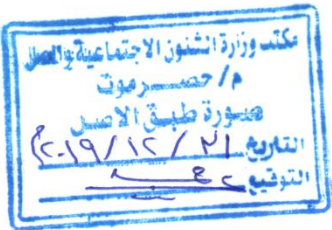 مكتب وزارة الشئون الاجتماعية والعمل
م/حضرموت
صورة طبق الاصل
التاريخ ٣١ / ١٢ / ٢٠١٩م
التوقيع